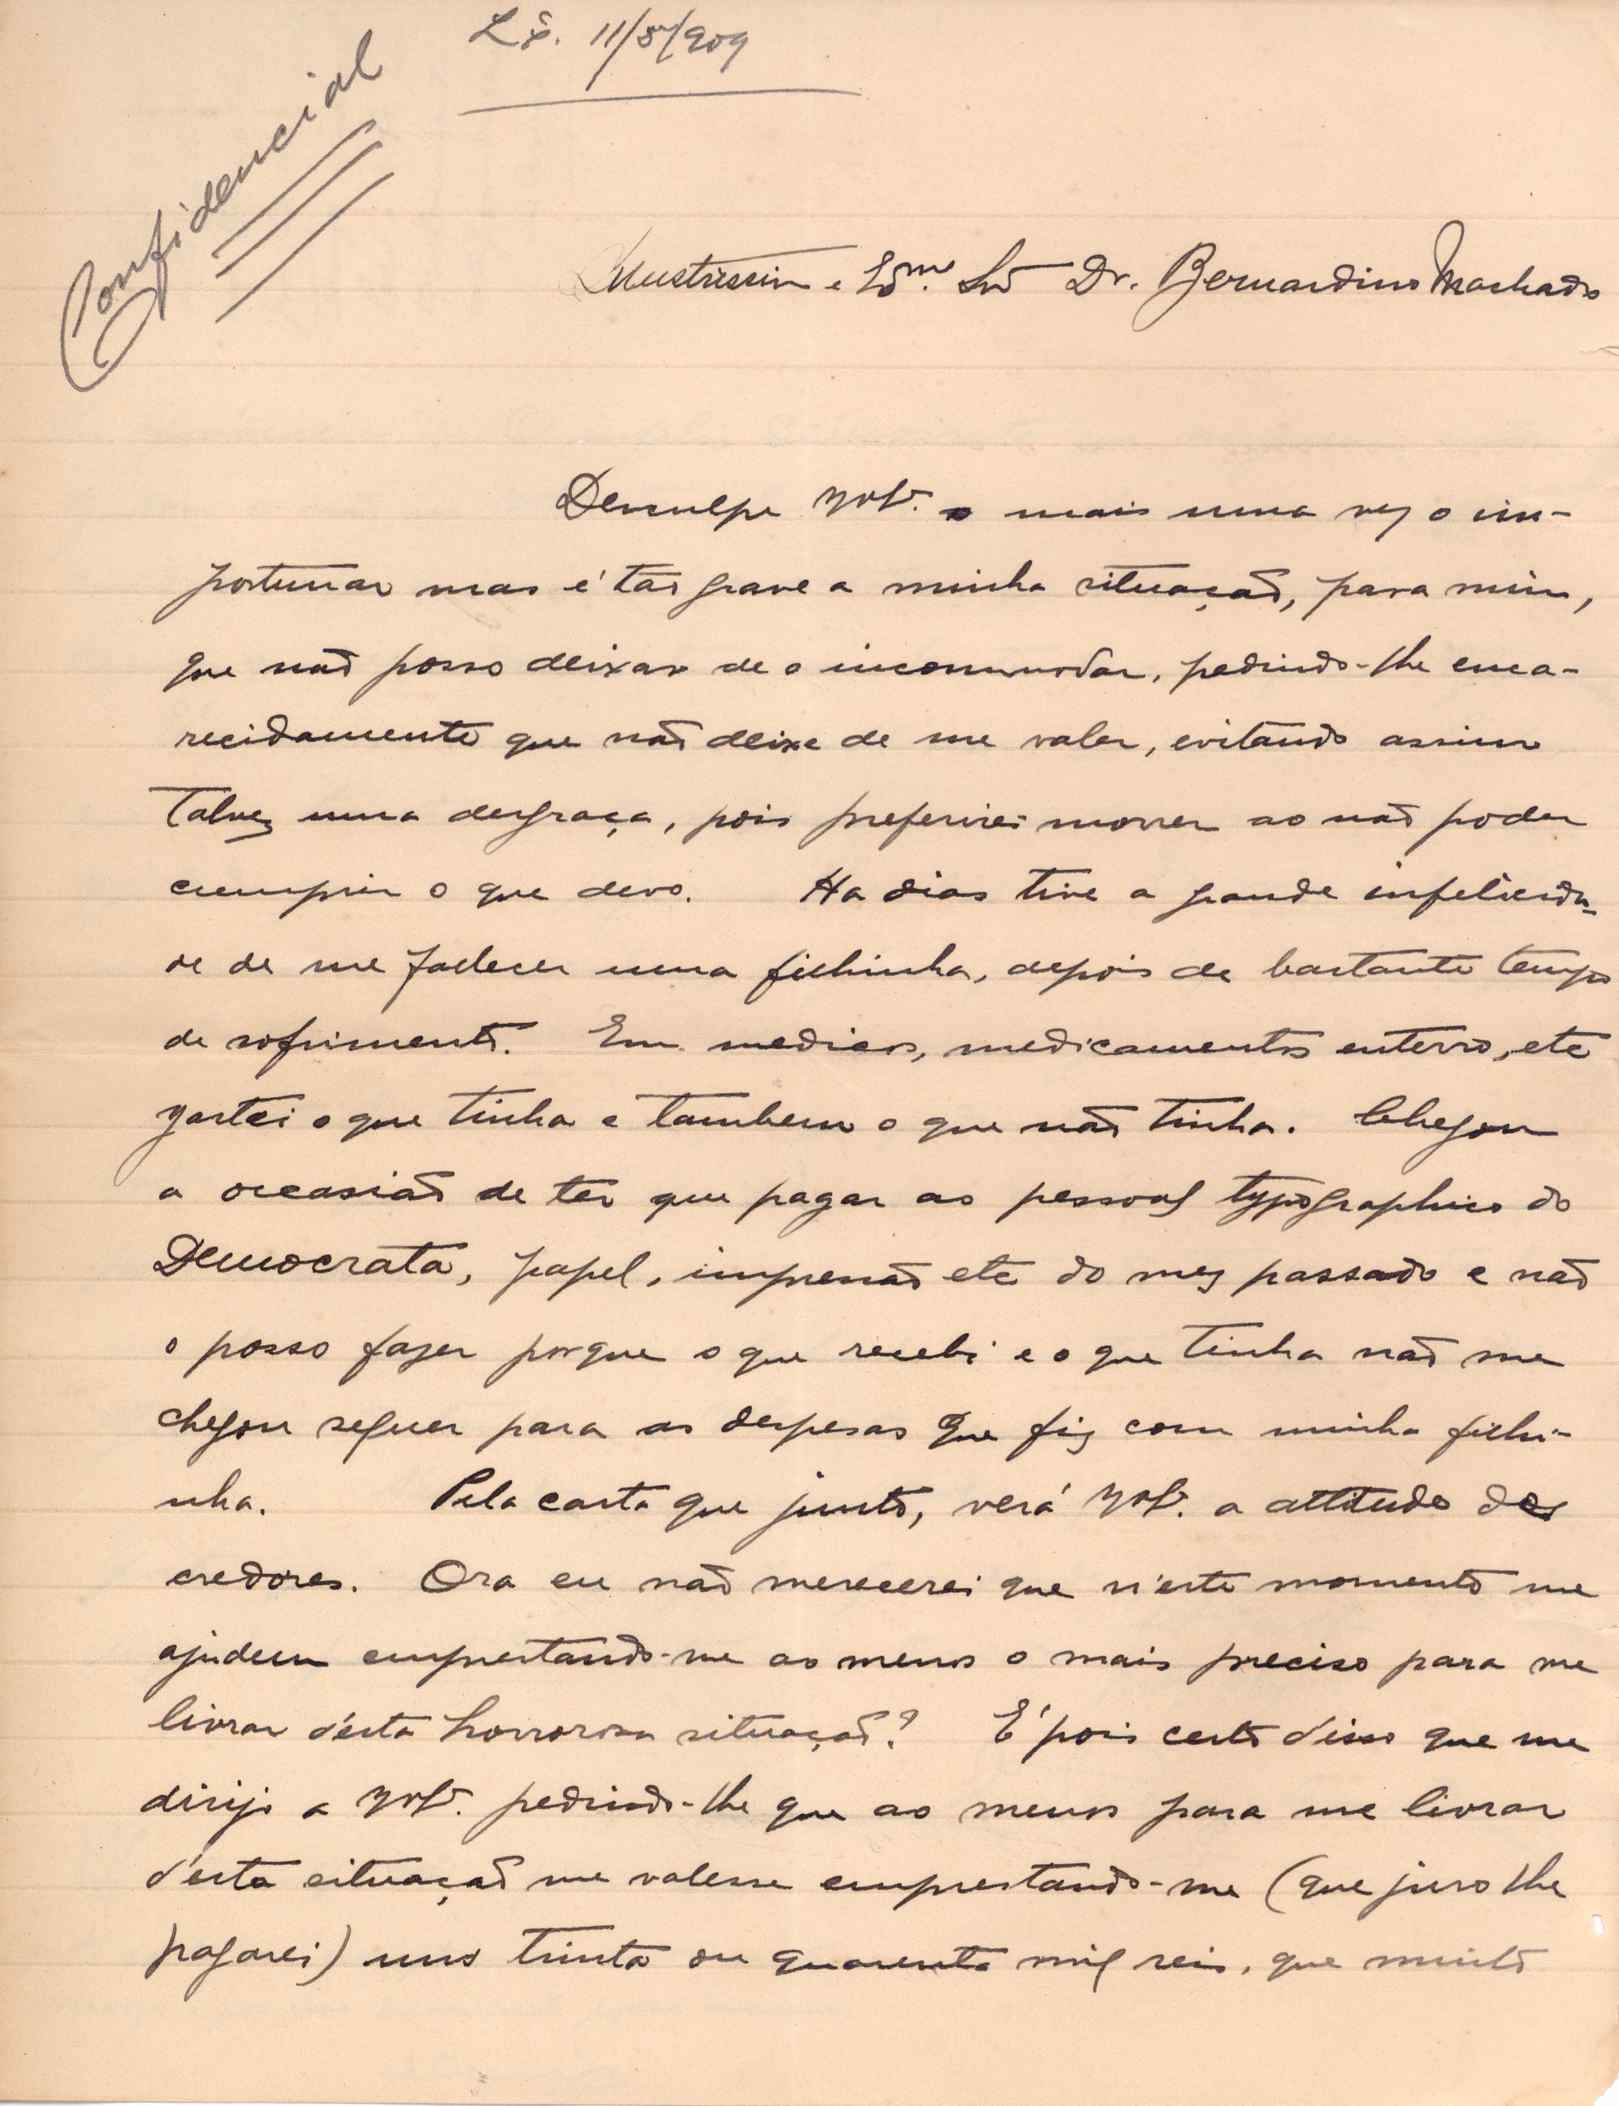 Lx. 11/5/909
Confidencial
Illustrissim e Exmo. Snr Dr. Bernardino Machado
Desculpe V. Exª. mais uma vez o im-
portunar mas é tão grave a minha situação, para mim,
que não posso deixar de o incommodar, pedindo-lhe enca-
recidamente que não deixe de me valer, evitando assim
talvez uma desgraça, pois preferirei morrer ao não poder
cumprir o que devo. Ha dias tive a grande infelicida-
de de me falecer uma filhinha, depois de bastante tempo
de sofrimento. Em medicos, medicamentos enterro, etc
gastei o que tinha e tambem o que não tinha. Chegou
a occasião de ter que pagar ao pessoal typographico do
Democrata, papel, impressão etc do mez passado e não
o posso fazer porque o que recebi e o que tinha não me
chegou sequer para as despesas que fiz com minha filhi-
nha. Pela carta que junto, verá V. Exª. a attitude dos
credores. Ora eu não merecerei que n'este momento me
ajudem emprestando-me ao menos o mais preciso para me
livrar d'esta horrorosa situação? É pois certo d'isso que me
dirijo a V. Exª. pedindo-lhe que ao menos para me livrar
d'esta situação me valesse emprestando-me (que juro lhe
pagarei) uns trinta ou quarenta mil reis, que muito